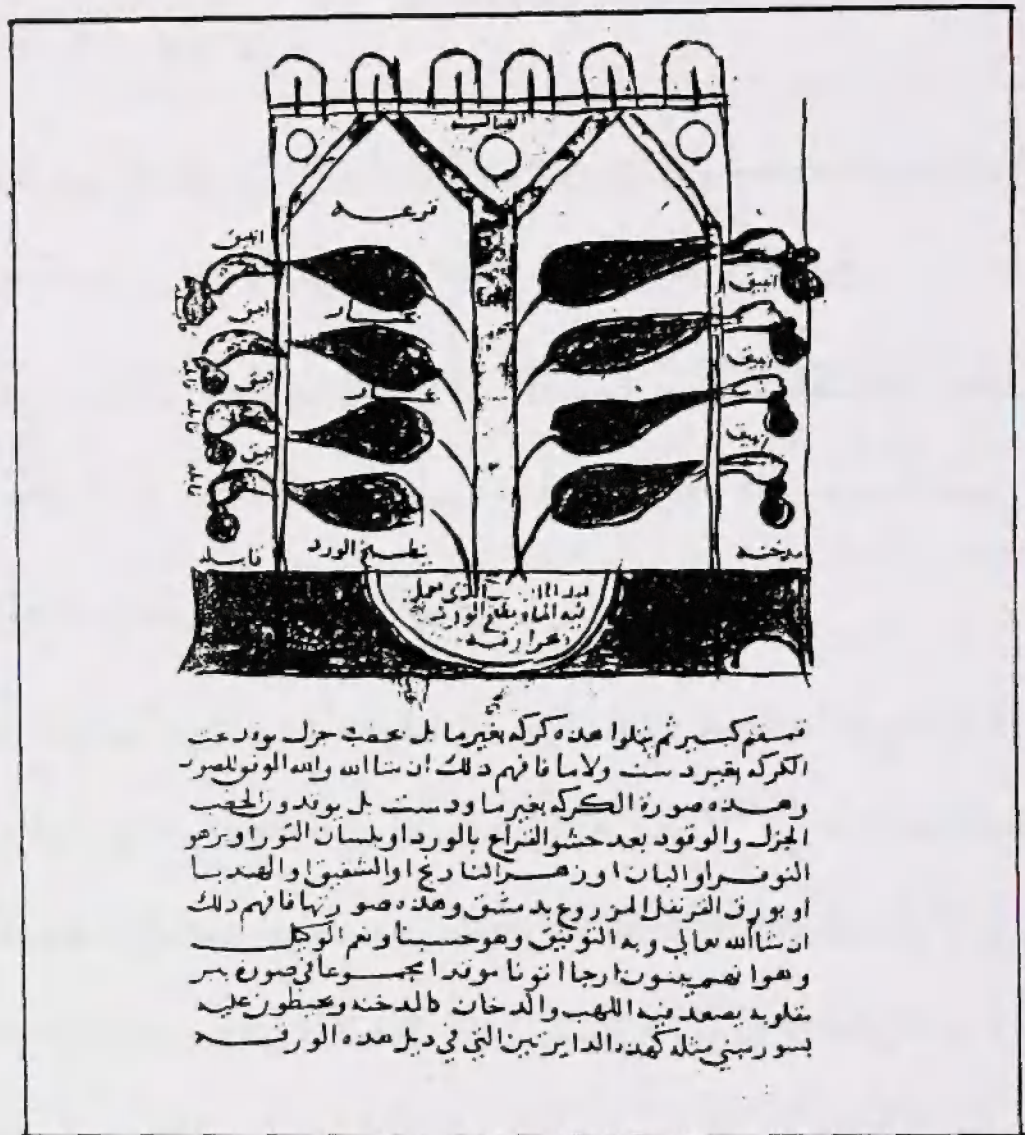 قرعه
انبيق
انبيق
انبيق
انبيق
انبيق
انبيق
انبيق
بخار
بخار
قابله
قابله
قابله
قابله
يطبخ الورد
قابله
مدخنه
الذى يعمل
فيه الماء يطبخ الورد
بحرارته
قمقم كبير ثم يتلوا هذه كركه بغير ما بل بحطب جزل
الكركه بغير دست ولا ما فافهم ذلك ان شا الله والله الموفق للصو
وهذه صورة الكركه بغير ما ودست بل يوقدون الحطب
الجزل والوقود بعد حشو القراع بالورد او بلسان الثور او بزهر
النوفر او البان او زهر النارنج او الشقيق او الهندبا
او بورق القرنفل المزروع بدمشق وهذه صورتها فافهم ذلك
ان شا الله تعالى وبه التوفيق وهو حسبنا ونعم الوكيل
وهو انهم يبنون ارجا اتونا موقدا مجموعا فى صورة بير
مقلوبه يصعد فيه اللهب والدخان كالمدخنه ويحيطون عليه
بسور مبني مثله كهذه الدايرتين التي في ذيل هذه الورقه